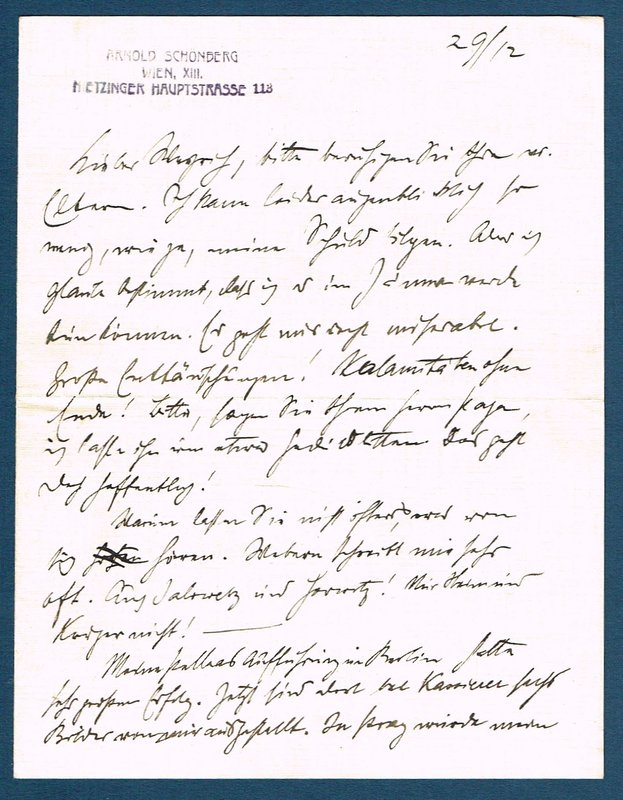 29/12
ARNOLD SCHÖNBERG
WIEN, XIII.
HIETZINGER HAUPTSTRASSE 113
Lieber bitte beruhigen Sie Ihre
Eltern. Ich kann leider augenblicklich so
wenig, wie je, meine Schuld tilgen. Aber ich
glaube bestimmt, dass ich es im Jänner werde
tun können. Es geht mir recht miserabel.
Große Enttäuschungen! Kalamitäten ohne
Ende! Bitte, sagen Sie Ihrem Herrn Papa,
ich lasse ihn um etwas Geduld bitten. Das geht
doch hoffentlich!
Warum lassen Sie nicht öfters was von
sich hören. Webern schreibt mir sehr
oft. Auch Jalowetz und Horwitz! Nur Sie und
Krüger nicht!
Meine Pelleas Aufführung in Berlin hatte
sehr großen Erfolg. Jetzt sind dort bei Cassirer sechs
Bilder von mir ausgestellt. In Prag wurde mein